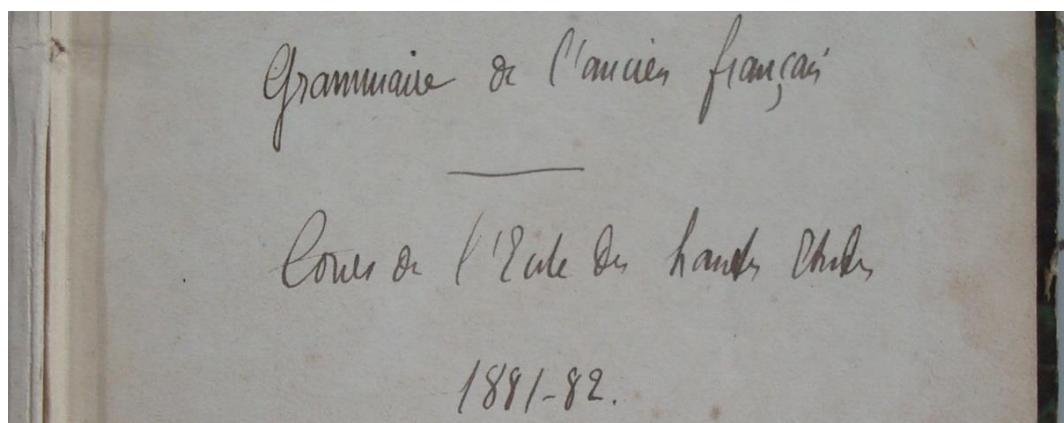 Grammaire de l'ancien français
Cours de l'Ecole des hautes Etudes
1881-82.